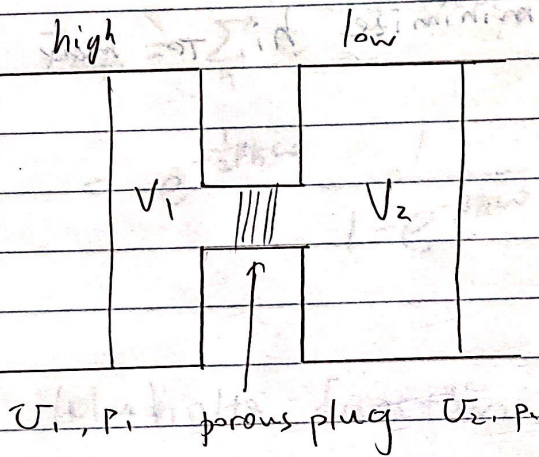 high low
V₁ V₂
U₁, P₁ porous plug U₂, P₂